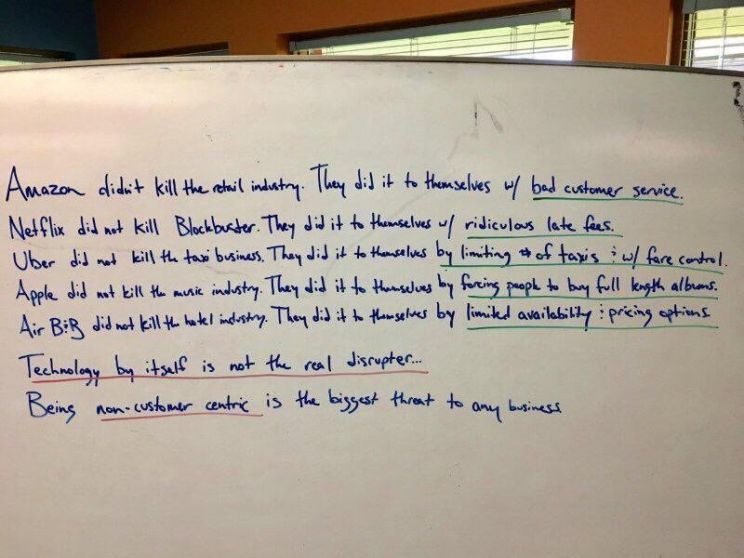 Amazon didn't kill the retail industry. They did it to themselves w/ bad customer service.
Netflix did not kill Blockbuster. They did it to themselves w/ ridiculous late fees.
Uber did not kill the taxi business. They did it to themselves by limiting # of taxis & w/ fare control.
Apple did not kill the music industry. They did it to themselves by forcing people to buy full length albums.
Air B&B did not kill the hotel industry. They did it to themselves by limited availability & pricing options.
Technology by itself is not the real disrupter...
Being non-customer centric is the biggest threat to any business